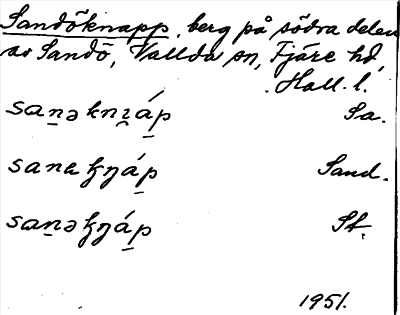 Sandöknapp, berg på södra delen
av Sandö, Vallda sn, Fjäre hd,
Hall. l.
sanəknáp Sa.
Sand.
St.
1951.